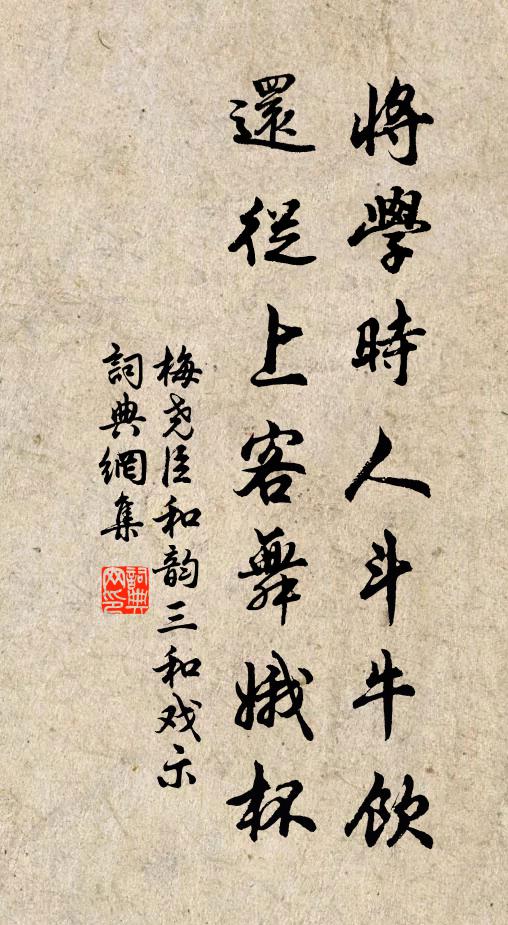 將學時人斗牛飲
還從上客舞娥杯
梅尧臣和韵三和戏示
詞典網集
詞典
網印